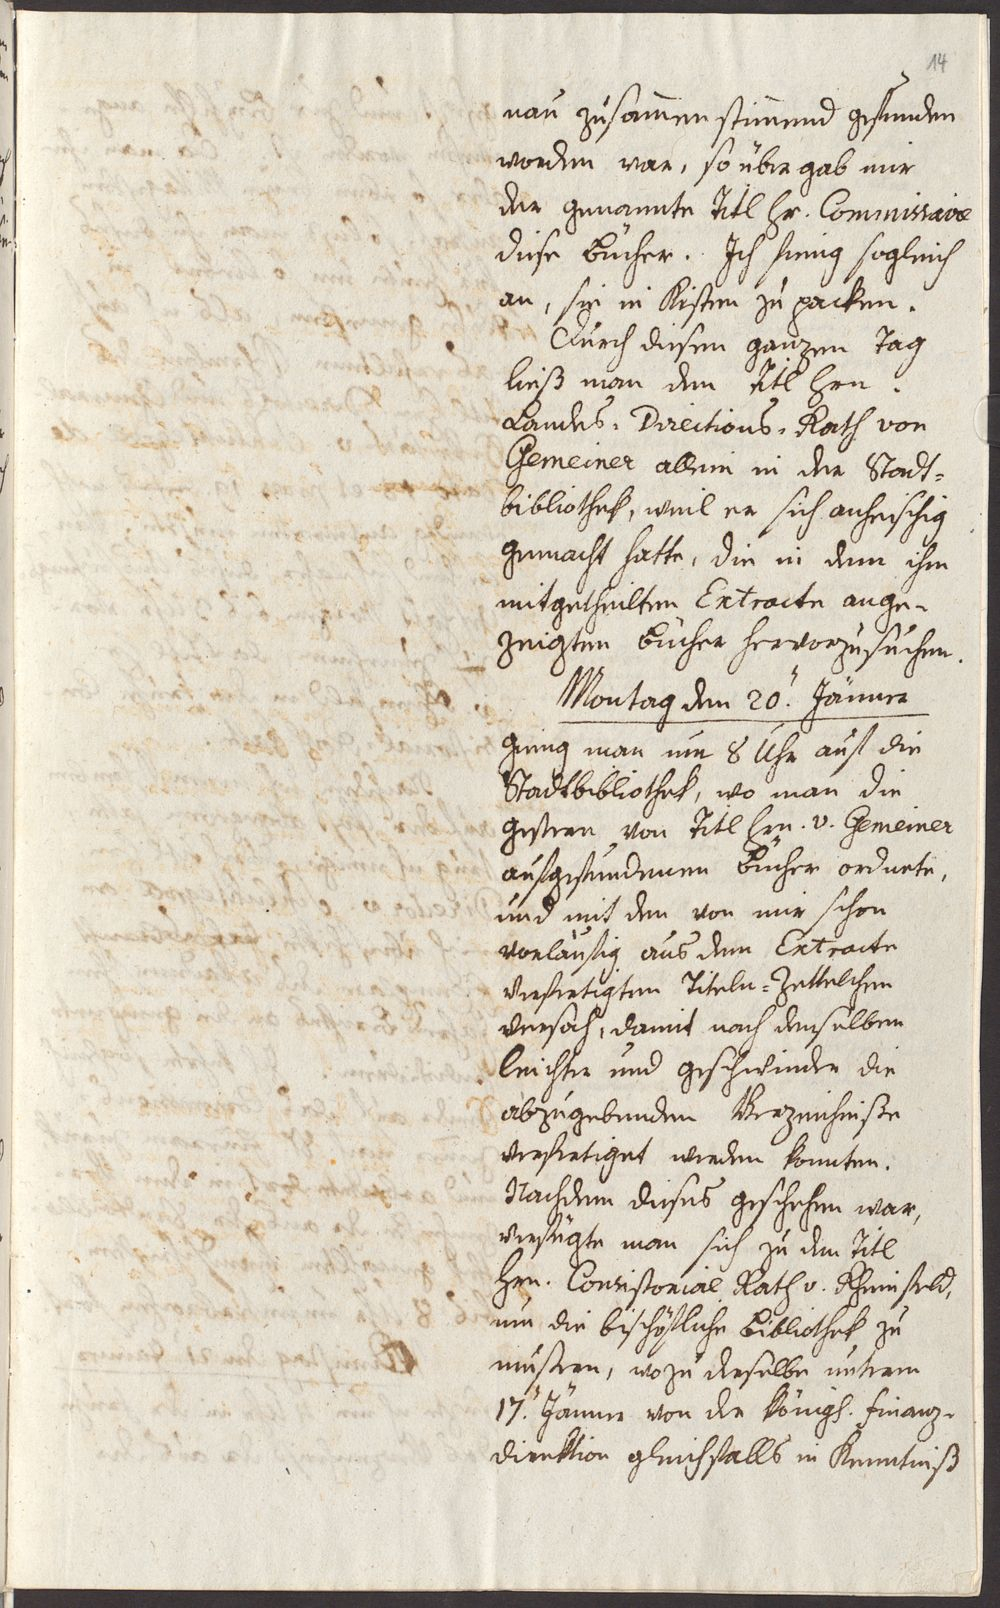 14
nau zusam̅en stim̅end gefunden
worden war, so übergab mir
der genannte Titl Hr. Commissaire
diese Bücher. Ich fieng sogleich
an, sie in Kisten zu packen.
Durch diesen ganzen Tag
ließ man den Titl Hrn.
Landes-Directions-Rath von
Gemeiner allein in der Stadt=
bibliothek, weil er sich anheischig
gemacht hatte, die in dem ihm
mitgetheilten Extracte ange-
zeigten Bücher hervorzusuchen.
Montag den 20. Jänner
gieng man um 8 Uhr auf die
Stadtbibliothek, wo man die
gestern von Titl Hrn. v. Gemeiner
aufgefundenen Bücher ordnete,
und mit den von mir schon
vorläufig aus dem Extracte
verfertigten Titeln=Zettelchen
versah, damit nach denselben
leichter und geschwinder die
abzugebenden Verzeichniße
verfertiget werden konnten.
Nachdem dieses geschehen war,
verfügte man sich zu dem Titl
Hrn. Consistorial Rath v. Rheinfeld,
um die bischöfliche Bibliothek zu
mustern, wozu derselbe unterm
17. Jänner von der königl. Finanz-
direktion gleichfalls in Kenntniß